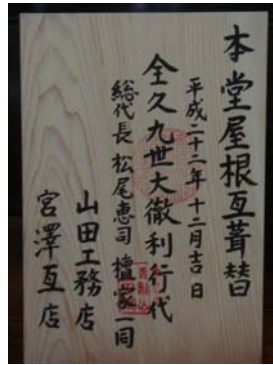 本堂屋根瓦葺替
平成二十二年十二月吉日
全久九世大徹利行代
総代長 松尾恵司 檀家一同
山田工務店
宮澤瓦店